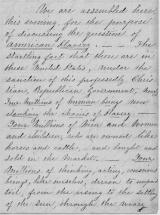 We are assembled here
this evening, for the purpose
of discussing the question of
American Slavery. — The
startling fact that there are in
these United States, under the
sanction of this professedly Chris
tian, Republican Government, 
Four Millions of human beings now
clanking the chains of Slavery.
Four Millions of Men and Women
and children, who are owned like
horses and cattle, and bought and
sold in the market. Four
Millions of thinking, acting, conscious
beings, like ourselves, driven to unpaid
toil, from the rising to the setting
of the sun through the weary